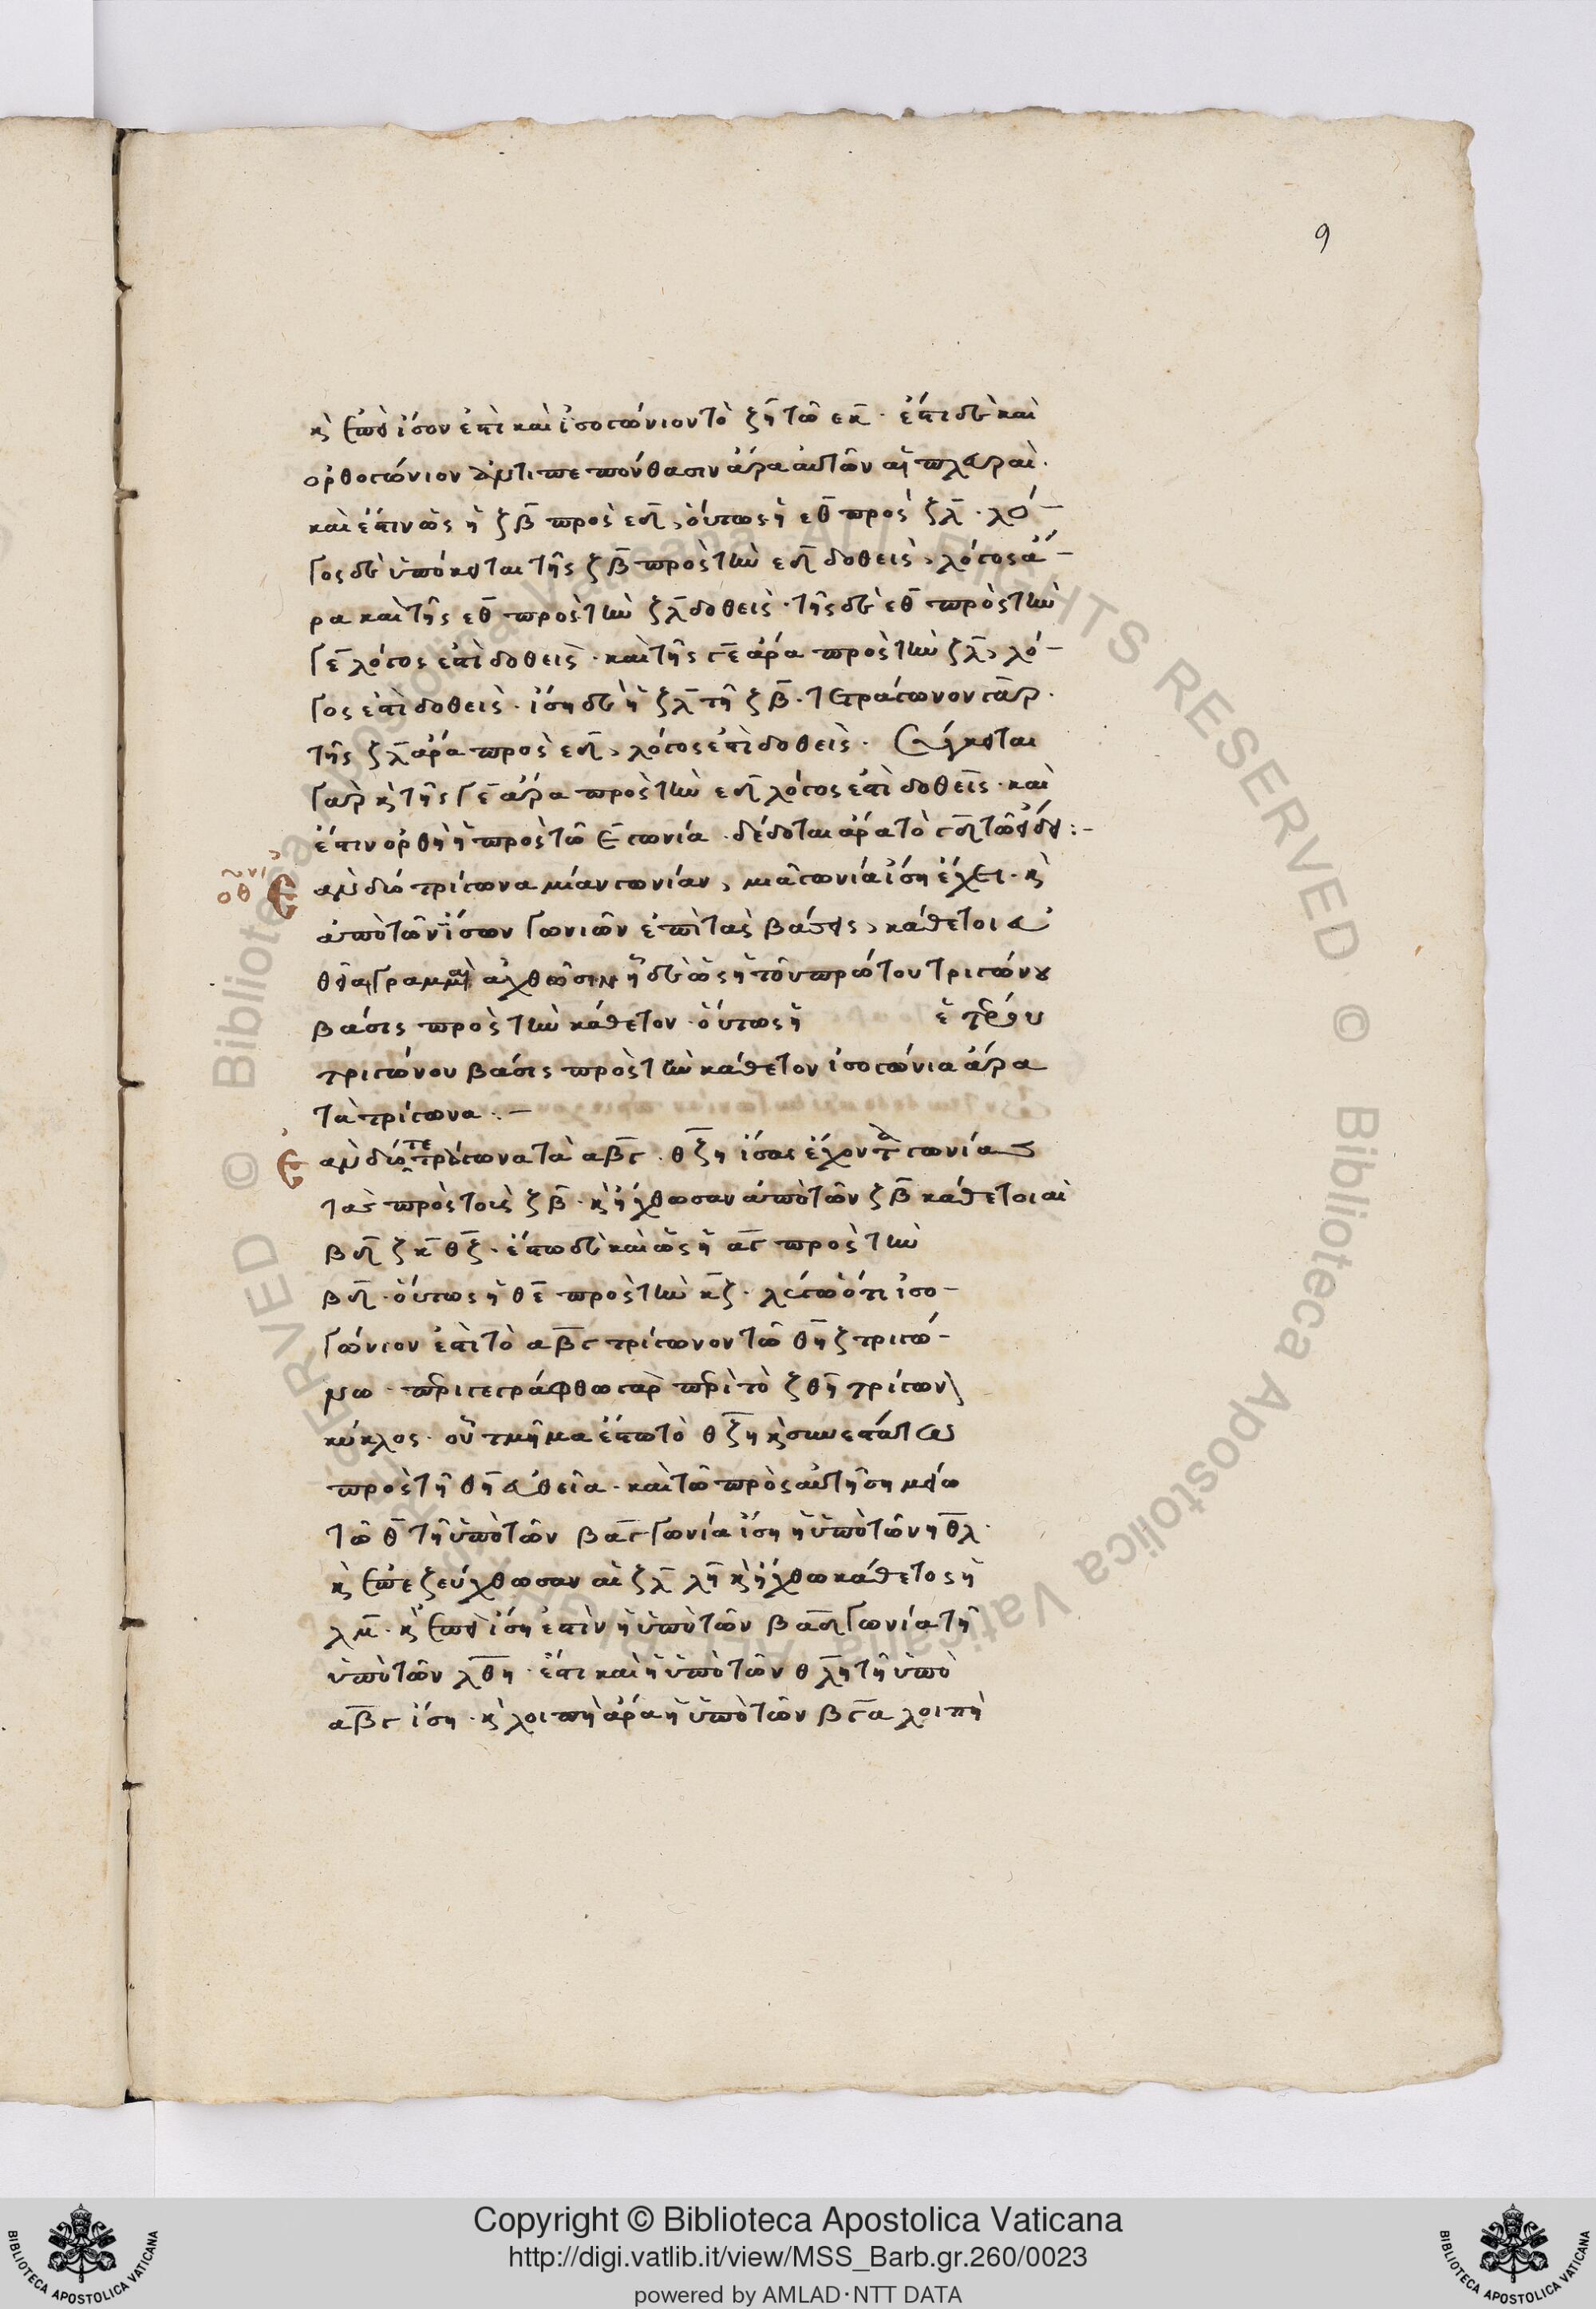 9
κ(αὶ) ἐπεὶ ἴσον ἐστὶ καὶ ἰσογώνιον τὸ ζη τῶ εκ · ἔστι δὲ καὶ
ὀρθογώνιον ἀντιπεπόνθασιν ἄρα αὐτῶν αἱ πλευραί ·
καὶ ἔστιν ὡς ἡ ζβ πρὸς εδ, οὕτως ἡ εθ πρὸς ζλ · λό-
γος δὲ ὑπόκειται τῆς ζβ πρὸς τὴν εδ δοθεὶς, λόγος ἄ-
ρα καὶ τῆς εθ πρὸς τὴν ζλ δοθεὶς · τῆς δὲ εθ πρὸς τὴν
γε λόγος ἐστὶ δοθεὶς · καὶ τῆς γε ἄρα πρὸς τὴν ζλ, λό-
γος ἐστὶ δοθεὶς · ἴση δὲ ἡ ζλ τῆ ζβ · τετράγωνον γὰρ ·
τῆς ζλ ἄρα πρὸς εδ, λόγος ἐστὶ δοθεὶς ·
γὰρ κ(αὶ) τῆς γε ἄρα πρὸς τὴν εδ λόγος ἐστὶ δοθεὶς · καὶ
ἔστιν ὀρθὴ ἡ πρὸς τῶ ε γωνία · δέδοται ἄρα τὸ γδ τῶ εἴδει :-
οθ
Ἐὰν δύο τρίγωνα μίαν γωνίαν, μιᾶ γωνία ἴση ἔχει · κ(αὶ)
ἀπὸ τῶν ἴσων γωνιῶν ἐπὶ τὰς βάσεις, κάθετοι εὐ
θεῖαι γραμμαὶ ἀχθῶσιν ἦ δὲ ὡς ἡ τοῦ πρώτου τριγώνου
βάσις πρὸς τὴν κάθετον · οὕτως ἡ ἑτέρου
τριγώνου βάσις πρὸς τὴν κάθετον ἰσογώνια ἄρα
τὰ τρίγωνα · -
Ἐὰν δύο τρίγωνα τὰ αβγ · θζη ἴσας ἔχοντα γωνίας
τὰς πρὸς τοῖς ζβ · κ(αὶ) ἤχθωσαν ἀπὸ τῶν ζβ κάθετοι αἱ
βδ ζκ θζ · ἔστω δὲ καὶ ὡς ἡ αγ πρὸς τὴν
βδ · οὕτως ἡ θε πρὸς τὴν κζ · λέγω ὅτι ἰσο-
γώνιον ἐστὶ τὸ αβγ τρίγωνον τῶ θηζ τριγώ-
νω · περιγεγράφθω γὰρ περὶ τὸ ζθη τρίγωνον
κύκλος · οὗ τμῆμα ἔστω τὸ θζη κ(αὶ) συνεστάτω
πρὸς τῆ θη εὐθεῖα · καὶ τῶ πρὸς αὐτῆ σημείω
τῶ θ τῆ ὑπὸ τῶν βαγ γωνία ἴση ἡ ὑπὸ τῶν ηθλ ·
κ(αὶ) ἐπεζεύχθωσαν αἱ ζλ λη κ(αὶ) ἤχθω κάθετος ἡ
λμ · κ(αὶ) ἐπεὶ ἴση ἐστὶν ἡ ὑπὸ τῶν βαδ γωνία τῆ
ὑπὸ τῶν λθη · ἔστι καὶ ἡ ὑπὸ τῶν θλη τῆ ὑπὸ
αβγ ἴση · κ(αὶ) λοιπὴ ἄρα ἡ ὑπὸ τῶν βγα λοιπὴ
Copyright © Biblioteca Apostolica Vaticana
http://digi.vatlib.it/view/MSS_Barb.gr.260/0023
powered by AMLAD·NTT DATA